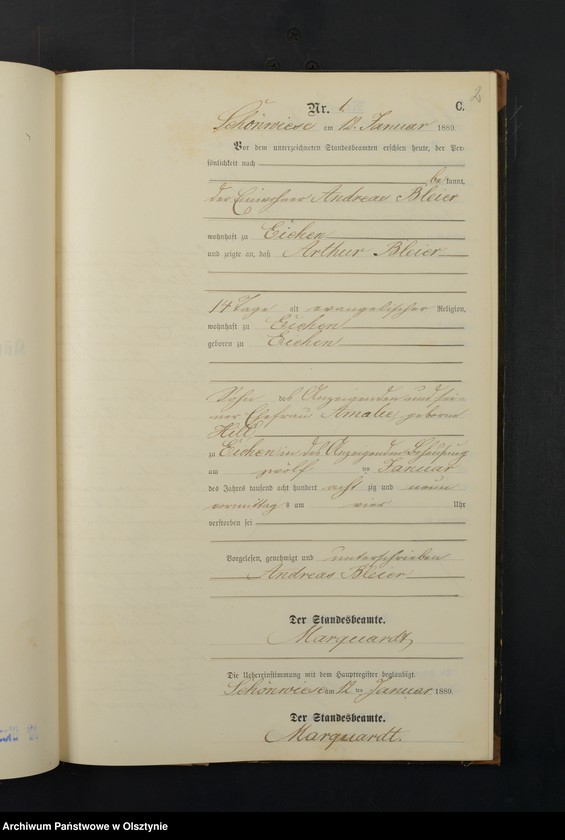 2
Nr. 1. C.
Schönwiese am 12. Januar 1889.
Vor dem unterzeichneten Standesbeamten erschien heute, der Per-
sönlichkeit nach
be kannt,
der Einwohner Andreas Bleier
wohnhaft zu Eichen
und zeigte an, daß Arthur Bleier
14 Tage alt evangelischer Religion,
wohnhaft zu Eichen
geboren zu Eichen
Sohn des Anzeigenden und sei-
ner Ehefrau Amalie, geborene
Hill
zu Eichen in des Anzeigenden Behausung
am zwölf ten Januar
des Jahres tausend acht hundert acht zig und neun
vormittag s um vier Uhr
verstorben sei
Vorgelesen, genehmigt und unterschrieben
Andreas Bleier
Der Standesbeamte.
Marquardt
Die Uebereinstimmung mit dem Hauptregister beglaubigt.
Schönwiese am 12 ten Januar 1889.
Der Standesbeamte.
Marquardt.
Archiwum Państwowe w Olsztynie